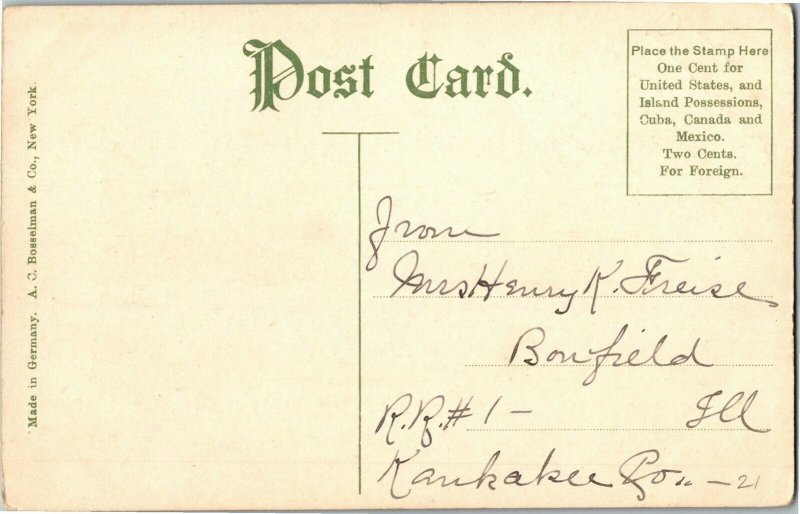 Post Card.
Place the Stamp Here
One Cent for
United States, and
Island Possessions,
Cuba, Canada and
Mexico.
Two Cents.
For Foreign.
Made in Germany. A. C. Bosselman & Co., New York.
From
Mrs Henry K. Freise
Bonfield
R.R.#1- Ill
Kankakee Co. -21